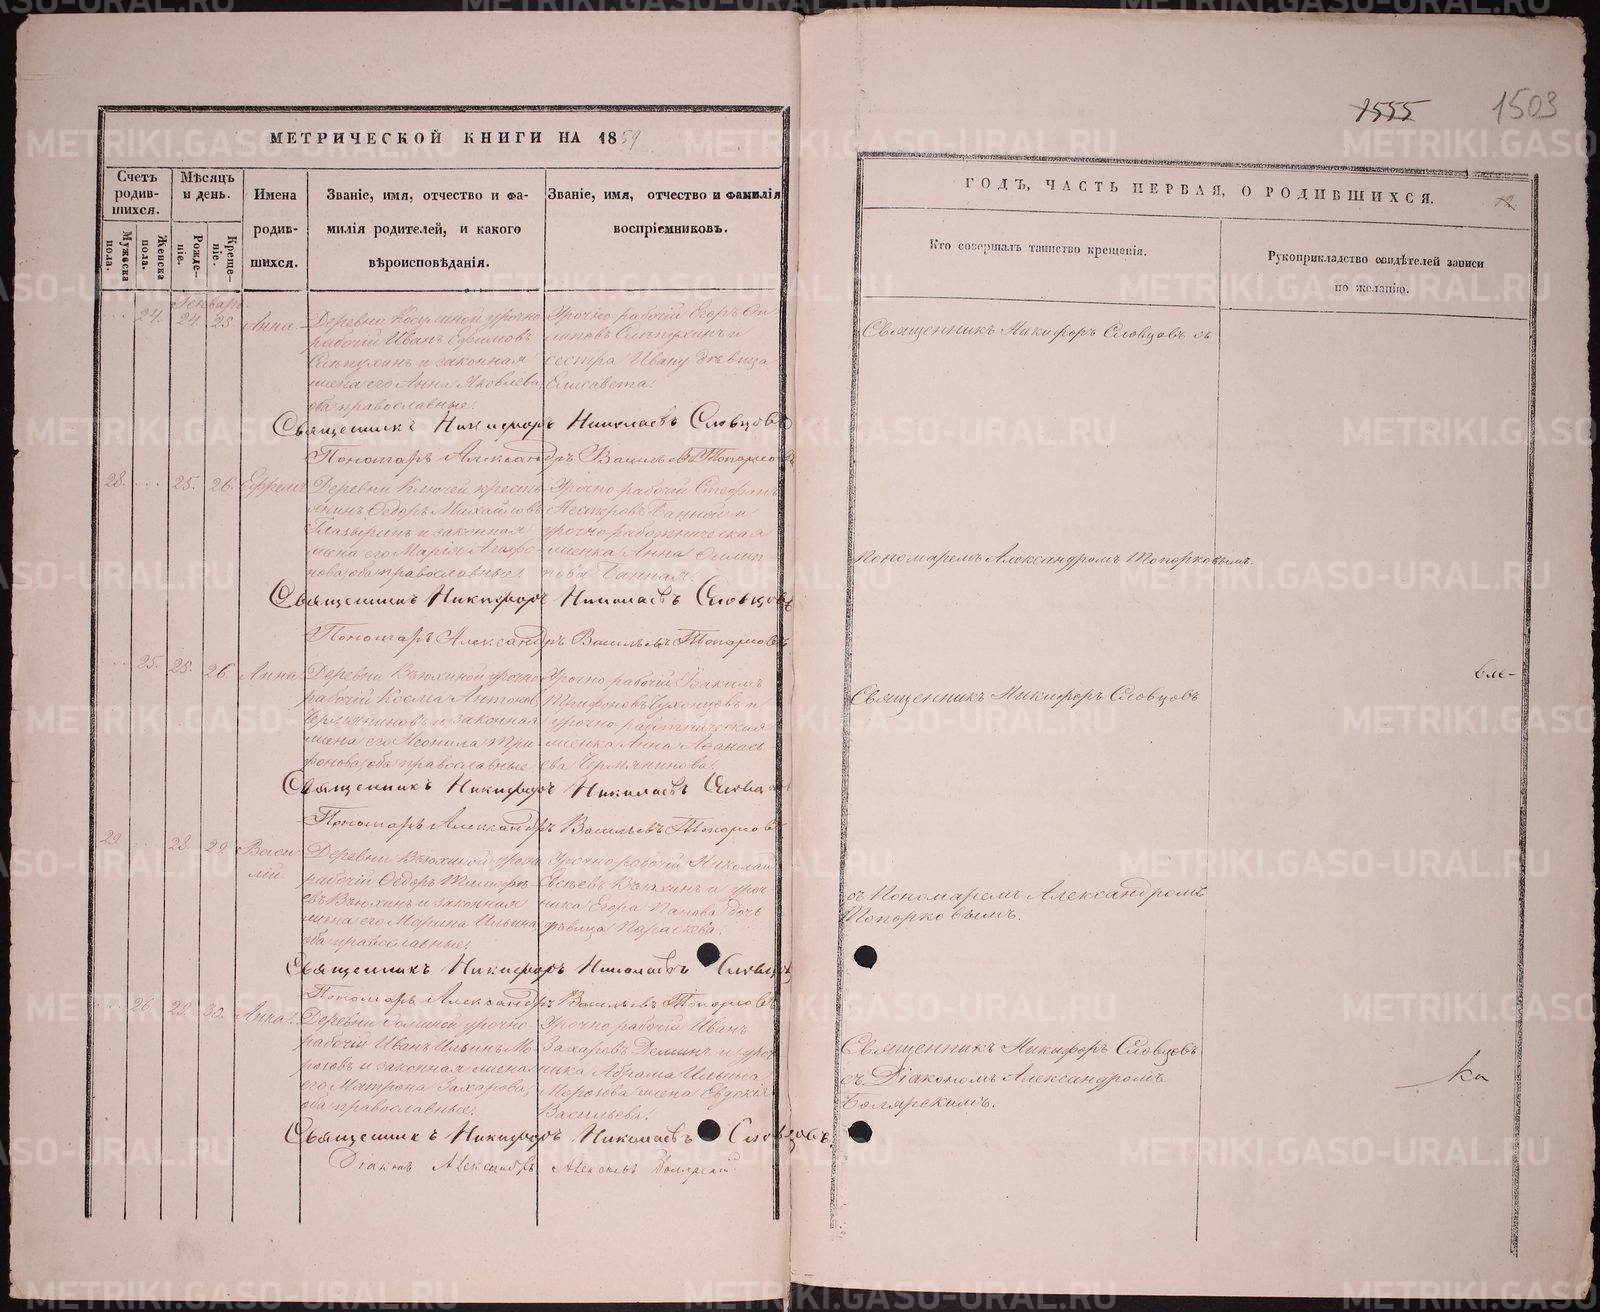 1555 1503
МЕТРИЧЕСКОЙ КНИГИ НА 1859
Счетъ родив-шихся.
Мужеска пола.
Женска пола.
Мѣсяцъ и день.
Рожде-ніе.
Креще-ніе.
Имена родив-шихся.
Званіе, имя, отчество и фа-
милія родителей, и какого
вѣроисповѣданія.
Званіе, имя, отчество и фамилія
воспріемниковъ.
Генварь
24. 24 25. Анна.
Деревни Косулиной урочно
рабочій Иванъ Ефимовъ
и законная
жена его Анна Яковлева,
оба православные.
Урочно рабочій Егоръ
сестра Ивану дѣвица
Елисавета.
Священникъ Никифоръ Николаевъ Словцовъ
Пономарь Александръ Васильевъ Топорковъ
28. 25. 26. Ефремъ
Деревни Ключей кресть-
янинъ Ѳедоръ Михайловъ
Глазыринъ и законная
жена его Марія Агафо-
нова, оба православные.
Урочно рабочій Стефанъ
Нестеровъ Банной и
урочно работническая
женка Анна
Банная.
Священникъ Никифоръ Николаевъ Словцовъ
Пономарь Александръ Васильевъ Топорковъ
25. 25. 26. Анна
Деревни Вьюхиной урочно
рабочій Косма Антоновъ
Чермяниновъ и законная
жена его Неонила Три-
фонова, оба православные
Урочно рабочій Іоакимъ
Трифоновъ Чухонцовъ и
урочно-работническая
женка Анна Аѳанась-
ева Чермянинова.
Священникъ Никифоръ Николаевъ Словцовъ
Пономарь Александръ Васильевъ Топорковъ
29 28. 29 Васи-
лій
Деревни Вьюхиной урочно
рабочій Ѳедоръ Тимофе-
евъ Вьюхинъ и законная
жена его Марина Ильина,
оба православные.
Урочно рабочій Николай
Евсѣевъ Вьюхинъ и уроч-
ника Егора Панова дочь
дѣвица Параскева.
Священникъ Никифоръ Николаевъ Словцовъ
Пономарь Александръ Васильевъ Топорковъ
26. 29. 30. Анна.
рабочій Иванъ Ильинъ Мо-
розовъ и законная жена
его Матрона Захарова,
оба православные.
Урочно рабочій Иванъ
Захаровъ Деминъ и уроч-
ника Абрама Ильина
Морозова жена Евдокія
Васильева.
Священникъ Никифоръ Николаевъ Словцовъ.
Діаконъ Александръ Алексѣевъ Боярскій
ГОДЪ, ЧАСТЬ ПЕРВАЯ, О РОДИВШИХСЯ.
Кто совершалъ таинство крещенія.
Рукоприкладство свидѣтелей записи
по желанію.
Священникъ Никифоръ Словцовъ съ
Пономаремъ Александромъ Топорковымъ.
Священникъ Никифоръ Словцовъ
съ Пономаремъ Александромъ
Топорковымъ.
Священникъ Никифоръ Словцовъ
съ Діакономъ Александромъ
Боярскимъ.
METRIKI.GASO-URAL.RU